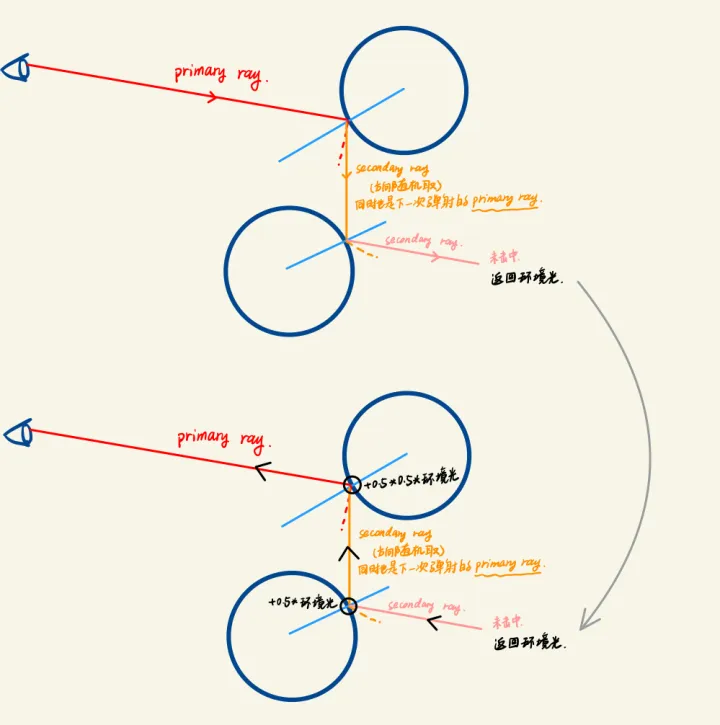 primary ray.
secondary ray
(方向随机取)
同时也是下一次弹射的primary ray.
secondary ray.
未击中.
返回环境光.
primary ray.
+0.5*0.5*环境光
secondary ray
(方向随机取)
同时也是下一次弹射的primary ray.
+0.5*环境光
secondary ray.
未击中.
返回环境光.